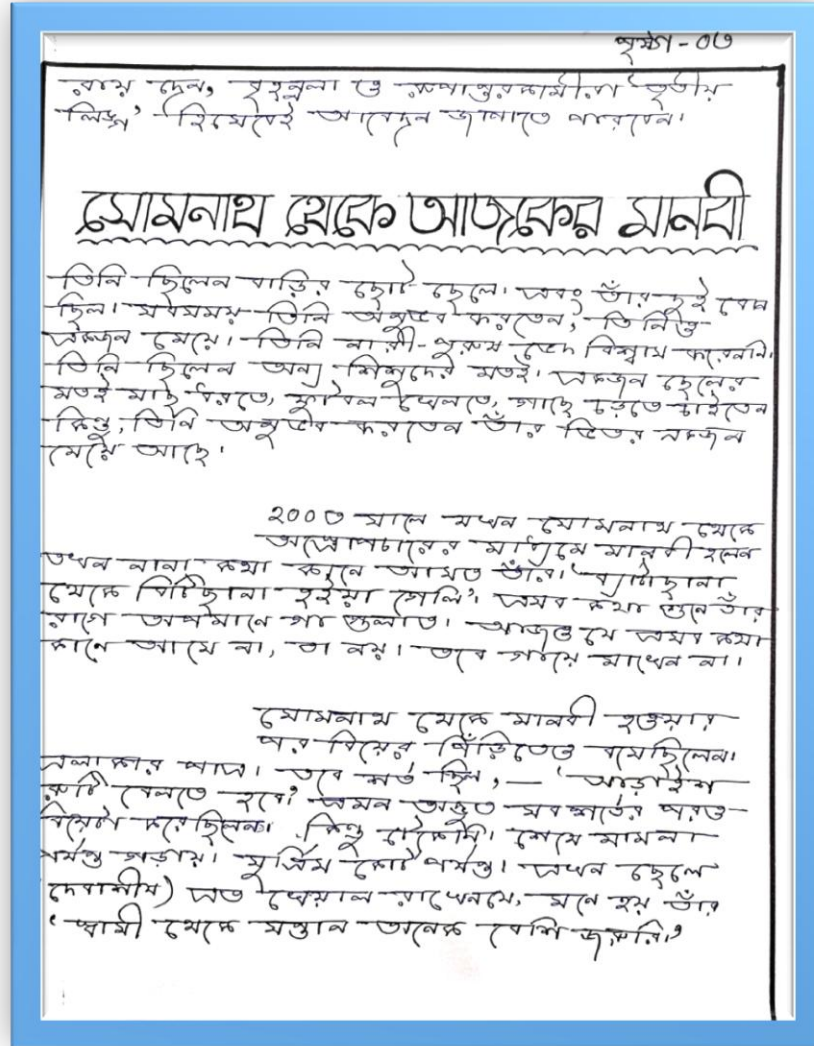 পৃষ্ঠা - ০৩
রায় দেন, বৃহন্নলা ও রূপান্তরকামীরা 'তৃতীয়
লিঙ্গ' হিসেবেই আবেদন জানাতে পারবেন।
সোমনাথ থেকে আজকের মানবী
তিনি ছিলেন বাড়ির ছোট ছেলে। এবং তাঁর দুই বোন
ছিল। সবসময় তিনি অনুভব করতেন, তিনিও
একজন মেয়ে। তিনি নারী-পুরুষ ভেদ বিশ্বাস করেননি।
তিনি ছিলেন অন্য শিশুদের মতই। একজন ছেলের
মতই মাছ ধরতে, ফুটবল খেলতে, গাছে চড়তে চাইতেন
কিন্তু, তিনি অনুভব করতেন তাঁর ভিতর একজন
মেয়ে আছে।
২০০৩ সালে যখন সোমনাথ থেকে
অস্ত্রোপচারের মাধ্যমে মানবী হলেন
তখন নানা কথা কানে আসত তাঁর। 'ব্যাটাছানা
থেকে বিটিছানা হইয়া গেলি'। এসব কথা শুনে তাঁর
রাগে অপমানে গা গুলাত। আজও যে এসব কথা
কানে আসে না, তা নয়। তবে গায়ে মাখেন না।
সোমনাথ থেকে মানবী হওয়ার
পর বিয়ের পিঁড়িতেও বসেছিলেন।
এলাকার পাত্র। তবে শর্ত ছিল,— 'আড়াইশ
রুটি বেলতে হবে'। এমন অদ্ভুত সব শর্তের পরও
বিয়েটা করেছিলেন। কিন্তু টেকেনি। শেষে মামলা
পর্যন্ত গড়ায়। সুপ্রিম কোর্ট পর্যন্ত। এখন ছেলে
দেবাশীষ) এত খেয়াল রাখেনযে, মনে হয় তাঁর
'স্বামী থেকে সন্তান অনেক বেশি জরুরি।'